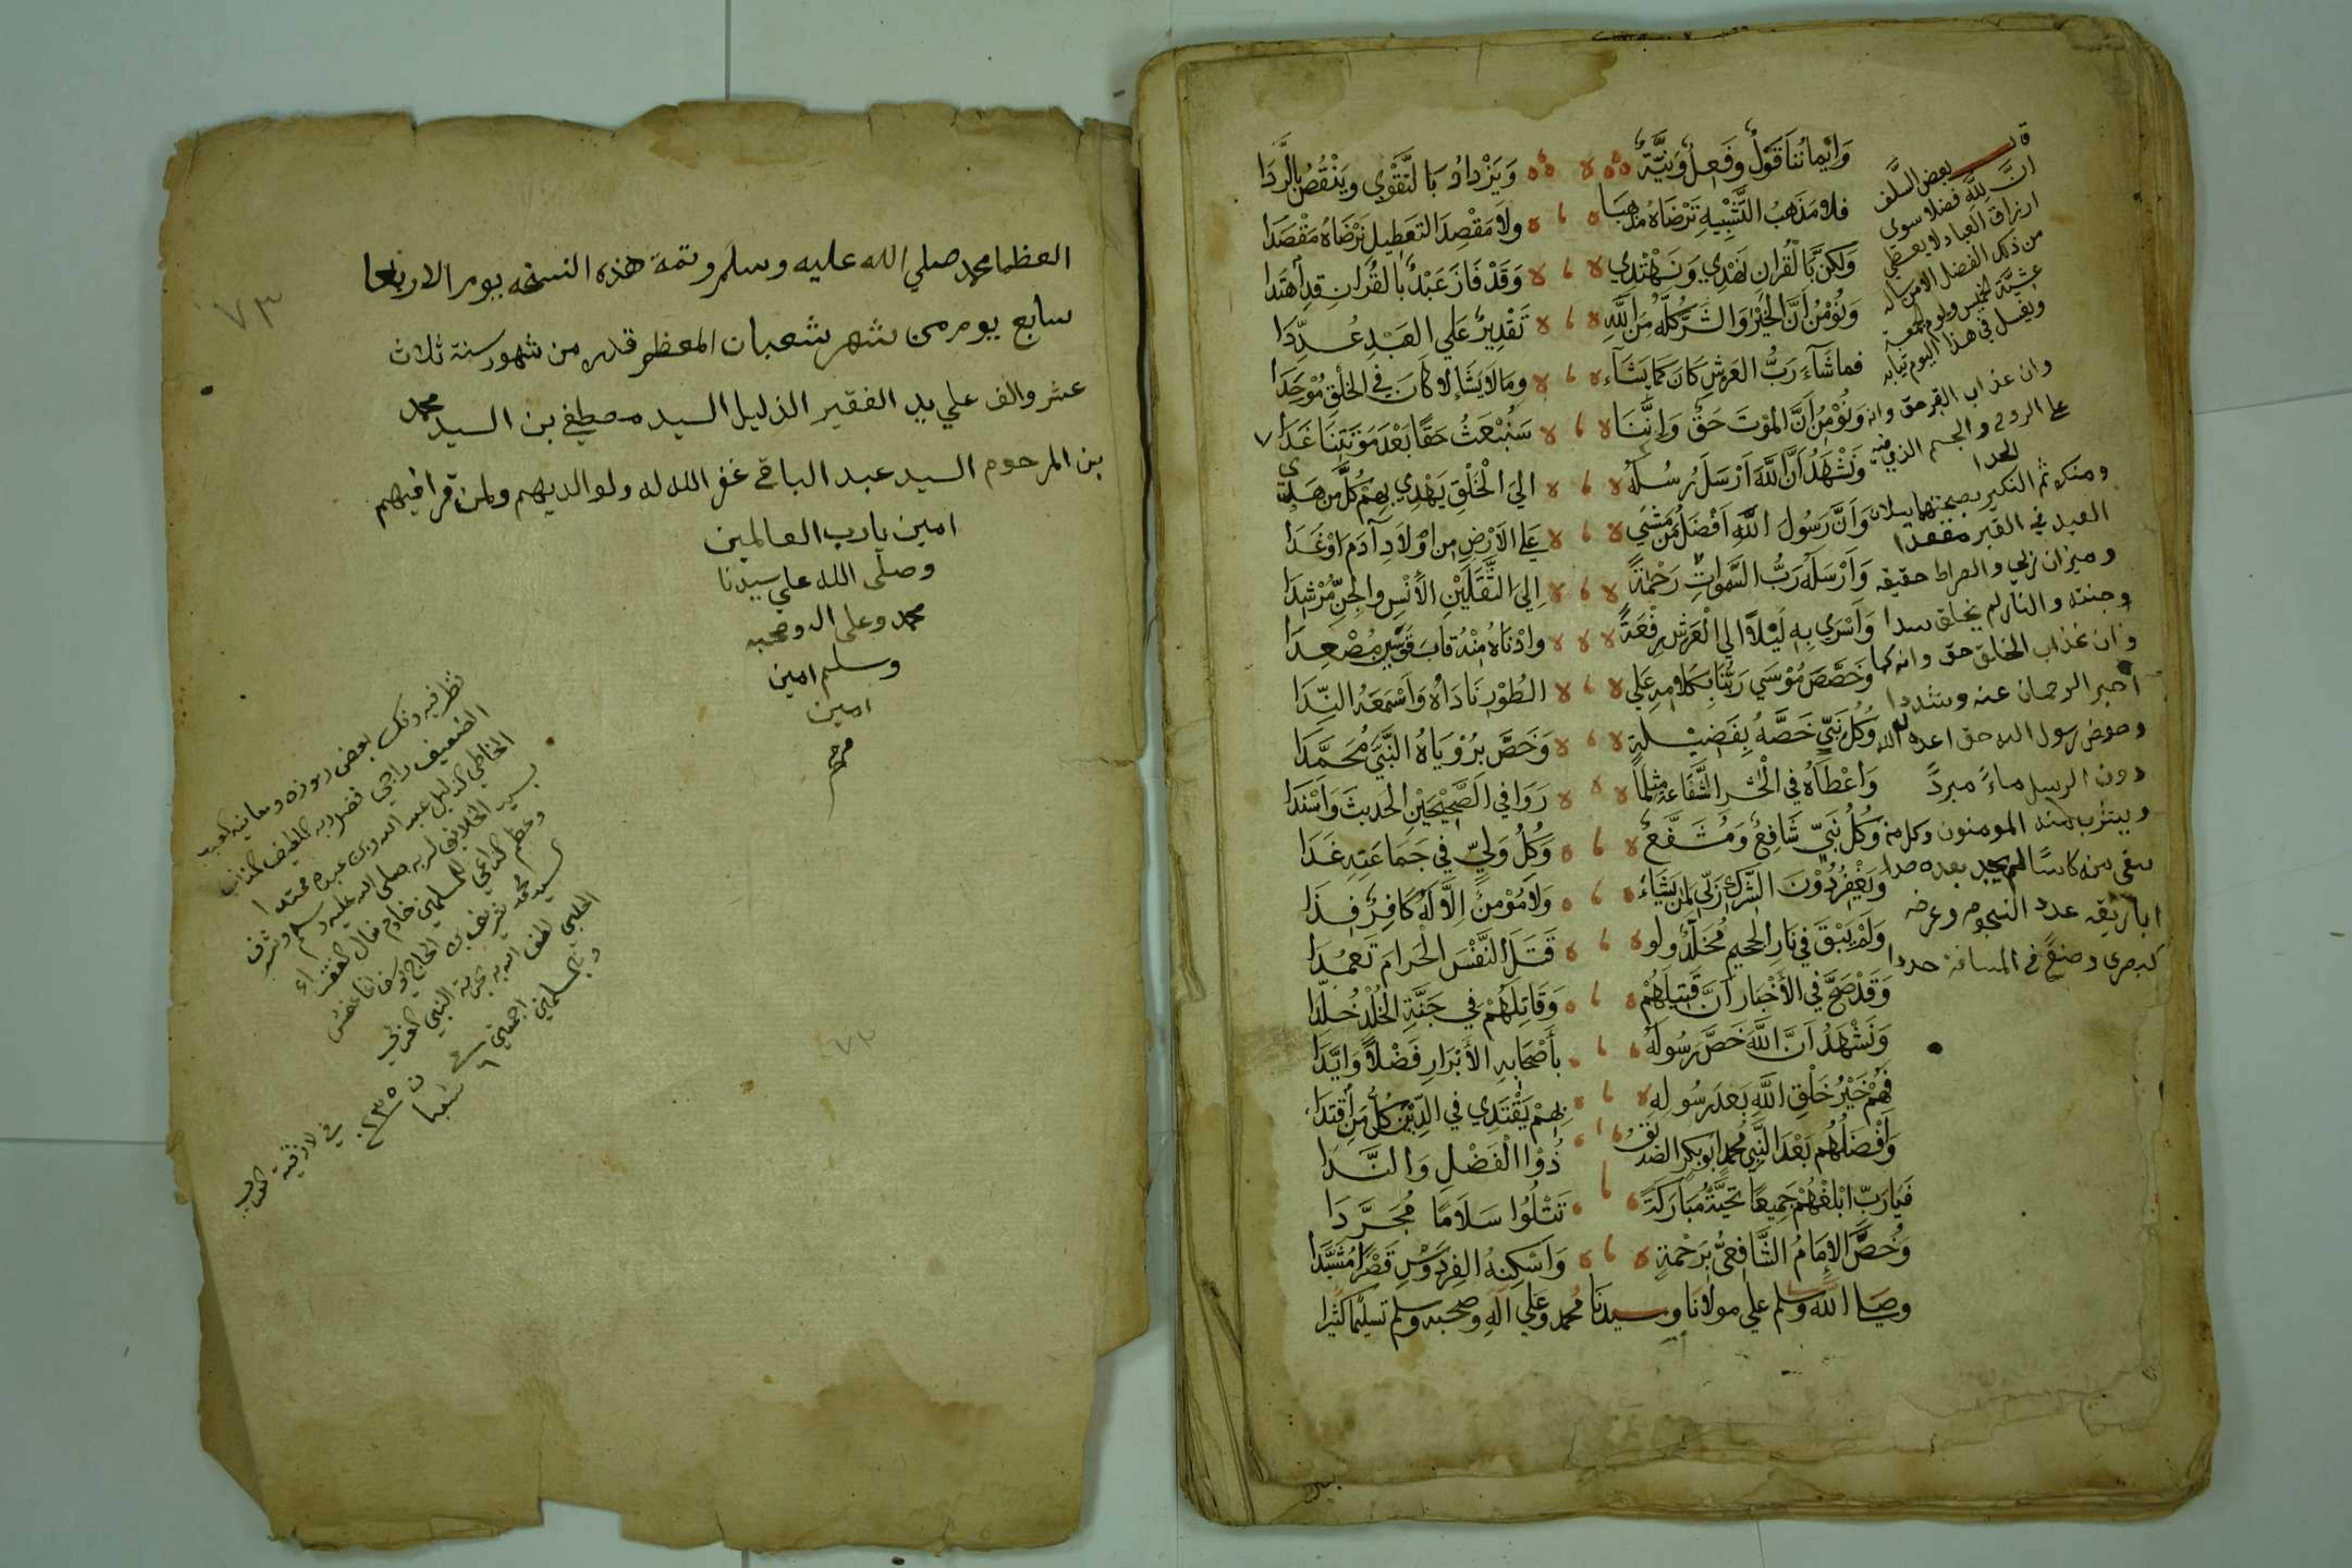 وَإِيمانُنا قَوْلٌ وَفِعْلٌ وَنِيَّةٌ وَيَزْدادُ بَالتَّقْوَي وَيَنْقُصُ بِالرَّدَا
فلا مَذهَبُ التَّشْبِيهِ نَرْضَاهُ مَذْهَبًا ولَا مَقْصِدَ التَعطِيلِ نَرْضَاهُ مَقْصَدَا
وَلكِنَّ بَالْقُرآنِ نَهْدِي وَنَهْتَدِي وَقَدْ فَازَ عَبْدٌ بالقُرانِ قدِ اهْتَدَا
وَنُؤْمِنُ اَنَّ الخَيْرَ وَالشَّرَّ كُلَّهُ مِنَ اللَّهِ تَقْدِيرٌ عَلي العَبْدِ عُدِّدَا
فماشَآءَ رَبُّ العَرشِ كانَ كَمَا يَشَآء وما لَا يَشَاء لا كَانَ في الخلْقِ مُوْجَدَا
وَنُؤْمِنُ اَنَّ المَوْتَ حَقٌ وَاِنَّنَا سَنُبْعَثُ حَقًا بَعْدَ مَوْتَتِنَا غَدَا
وَنَشْهَدُ اَنَّ اللَّهَ اَرْسَلَ رُسُلَهُ الَي الْخَلْقِ يَهْدِي بِهِمْ كُلَّ مَن هَدَي
وَاَنَّ رَسُولَ اللَّهِ اَفْضَلُ مَنْ مَشَي عَلَي الاَرْضِ مِن اَوْلَادِ آدَمَ اوْ غَدَا
وَاَرْسَلَهُ رَبُّ السَّمَواتِ رَحْمَةً اِلَيَ الثَّقَلَيْنِ الاُنْسِ والجِنِّ مُرْشِدَا
وَاَسْرَي بِهِ لَيْلاً الي الْعَرْشِ رِفْعَةً وادْنَاهُ مِنْهُ قابَ قَوْسَيْنِ مُصْعِدَا
وَخَصَّصَ مُوْسَي رَبُّنَا بِكَلامِهِ عَلي الطُوْرِ نَادَاهُ وَاَسْمَعَهُ النِّدَا
وَكُلُ نَبِيٍّ خَصَّهُ بِفَضِيْلَةٍ وَخَصَّ بِرُؤْيَاهُ النَّبَيَّ مُحَمَّدَا
وَاَعْطَاهُ في الْحَشْرِ الشَّفَاعَةَ مِثْلَمَا رَوَا في الصَّحِيْحَيْنِ الحَديثَ وَاَسْنَدَا
وَكُلُ نَبِيٍّ شَافِعٌ وَمُشَفَّعٌ وَكُلُ وَلِيٍّ في جَمَاعَتِهِ غَدَا
وَيَغْفِرُ دُوْنَ الشِّرْكِ رَبِّي لِمَنْ يَشَاءُ وَلَا مُؤْمِنٌ اِلَّا لَهُ كَافِرٌ فِدَا
وَلَمْ يَبْقَ في نَارِ الجحيمِ مُخَلَّدٌ ولو قَتَلَ النَّفْسَ الْحَرامَ تَعَمُدَا
وَقَدْ صَحَّ في الاَخْبَارِ اَنَّ قَتِيلَهُمْ وَقَاتِلَهُمْ في جَنَّةِ الخُلْدِ خُلِّدَا
وَنَشْهَدُ اَنَّ اللَّهَ خَصَّ رَسُولَهُ بِأَصْحَابِهِ الأَبْرَارِ فَضْلاً وَاَيَّدَا
فَهُمْ خَيْرُ خَلْقِ اللَّهِ بَعدَ رَسُولِهِ بِهِمْ يَقْتَدِي في الدِّيْنِ كُلُّ مَن اَقْتَدَا
وَاَفْضَلُهُم بَعْدَ النَّبِي مُحَمدٍ اَبوبَكرٍ الصديق ذُوْا الْفَضْلِ وَالنَّدَا
فَيَارَبِّ ابْلِغْهُمْ جَمِيعًا تَحِيَّةً مُبَارَكَةً تَتْلُوْا سَلَامًا مُجَرَّدَا
وَخُصَّ الاِمَامُ الشَّافِعِيُّ بِرَحْمَةٍ وَاَسْكِنْهُ الفِرْدَوْسِ قَصْرًا مُشَيَّدَا
وصلي الله وسلم علي مولانا وسيدنا محمد وعلي آله وصحبه وسلم تسليما كثيرا
قال بعض السَّلف
انَّ للَّه فضلا سوى
ارزاق العباد لا يعطي
من ذلك الفضل الا من ساله
عشيَّة الخميس ويوم الجمعة
ويغسل في هذا اليوم ثيابه
وان عذاب القبر حق وانه
على الروح والجسم الذي فيه
الحدا
ومنكر ثم النكير بصحبتهما يسلان
العبد في القبر مقعدا
وميزان ربي والصراط حقيقة
وجنته والنار لم يخلق سدا
وان عذاب الخلق حق وانه كما
اخبر الرحمان عنه وشددا
وحوض رسول الله حق اعده له الله
دون الرسل ماءً مبردً
ويشرب منه المومنون وكل من
سقي منه كاسًا لم يجد بعده صدا
اباريقه عدد النجوم وعرضه
كبصرى وصنعً في المسافة حددا
العظما محمد صلي الله عليه وسلم وتمة هذه النسخه يوم الاربعا
سابع يوم من شهر شعبان المعظم قدره من شهور سنة ثلاث
عشر والف علي يد الفقير الذليل السيد مصطفي بن السيد محمد
بن المرحوم السيد عبد الباقي غفر الله له ولوالديهم ولمن قرا فيهم
امين يارب العالمين
وصلّى الله علي سيدنا
محمد وعلى اله وصحبه
وسلم امين
امين
م
٧٣
نظر فيه وفك بعض رموزه ومعانيه
الضعيف راجي فضل ربه اللطيف
الخاطي الذليل عبد الله بن عبده محمد
سيد الخلايق لربه صلى الله عليه وسلم وشرف
وعظم الداعي للمسلمين خادم نعال الفقراء
السيد محمد شريف بن الحاج يوسف اغا
الحلبي بحرمة النبي العربي
والمسلمين اجمعين
٦ شعبان
٧٣